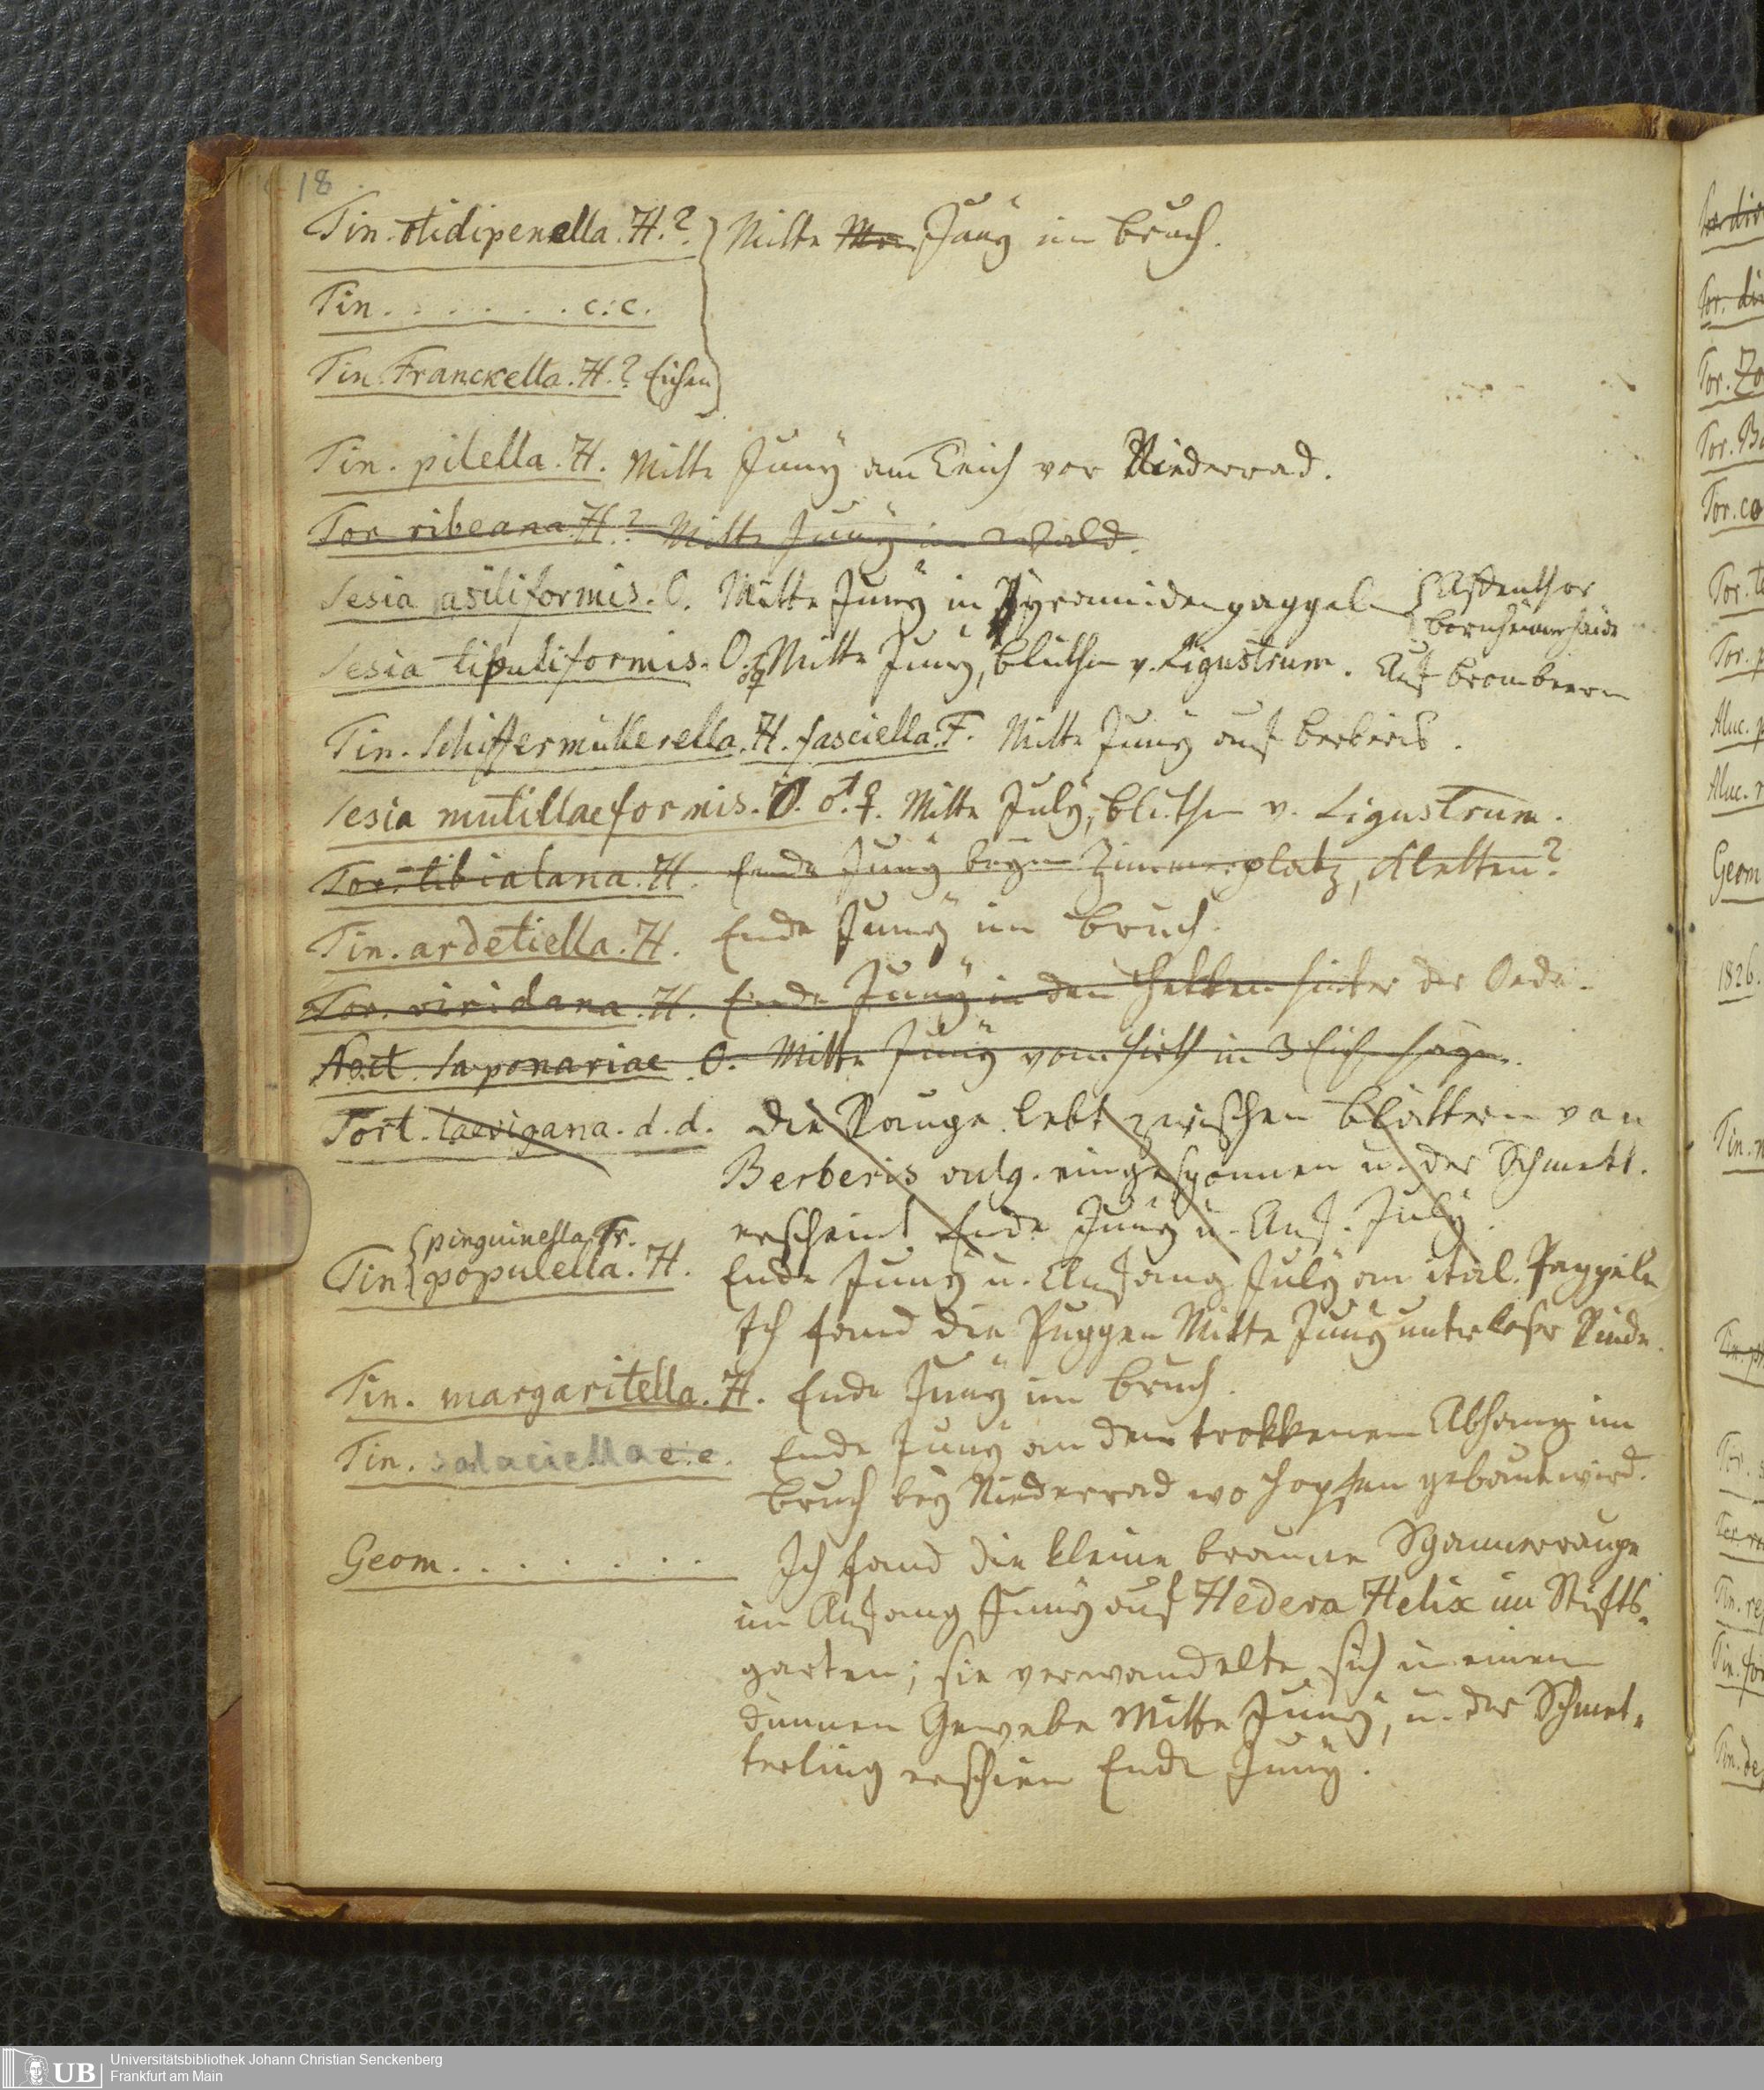 18
Tin. otidipenella. H.? Mitte Juny im Bruch.
Tin. . . . . . . c.c.
Tin. Franckella. H.? Eichen
Tin. pilella. H. Mitte Juny am Teich vor Niederrad.
Tor. ribeana. H.? Mitte Juny im Wald.
Sesia asiliformis. O. Mitte Juny in Pyramidenpappeln
Bornheimerheide
Sesia tipuliformis. O. ♂♀ Mitte Juny, Blüthen v. Ligustrum. Auf Brombeern
Tin. Schiffermüllerella. H. fasciella. F. Mitte Juny auf Berberis.
Sesia mutillaeformis. O. ♂. ♀. Mitte July, Blüthen v. Ligustrum.
Tor. tibialana. H. Ende Juny beym Zimmerplatz, Kletten?
Tin. ardetiella. H. Ende Juny im Bruch.
Tor. viridana. H. Ende Juny in den Hekken hinter der Oede.
Noct. Saponariae O. Mitte Juny vom in 3
Tort. laevigana. d.d. Die Raupe lebt zwischen Blättern von
Berberis vulg. eingesponnen u. der Schmett.
erscheint Ende Juny u. Anf. July.
pinguinella. Tr.
Tin. populella. H. Ende Juny u. Anfang July an ital. Pappeln
Ich fand die Puppen Mitte Juny unter loser Rinde.
Tin. margaritella. H. Ende Juny im Bruch.
Tin. salaciella e.e. Ende Juny an dem trokkenen Abhang im
Bruch bey Niederrad wo Hopfen gebaut wird.
Geom. . . . . . . Ich fand die kleine braune Spannerraupe
im Anfang Juny auf Hedera Helix im Stifts-
garten; sie verwandelte sich in einem
dünnen Gewebe Mitte Juny, u. der Schmet-
terling erschien Ende Juny.
Tor. di
Tor. Zo
Tor. Ba
Tor. co
Tor. te
Tor. p
Aluc. p
Aluc. r
Geom
1826.
Tin. n
Tin. re
Tin. for
Tin. de
UB
Universitätsbibliothek Johann Christian Senckenberg
Frankfurt am Main